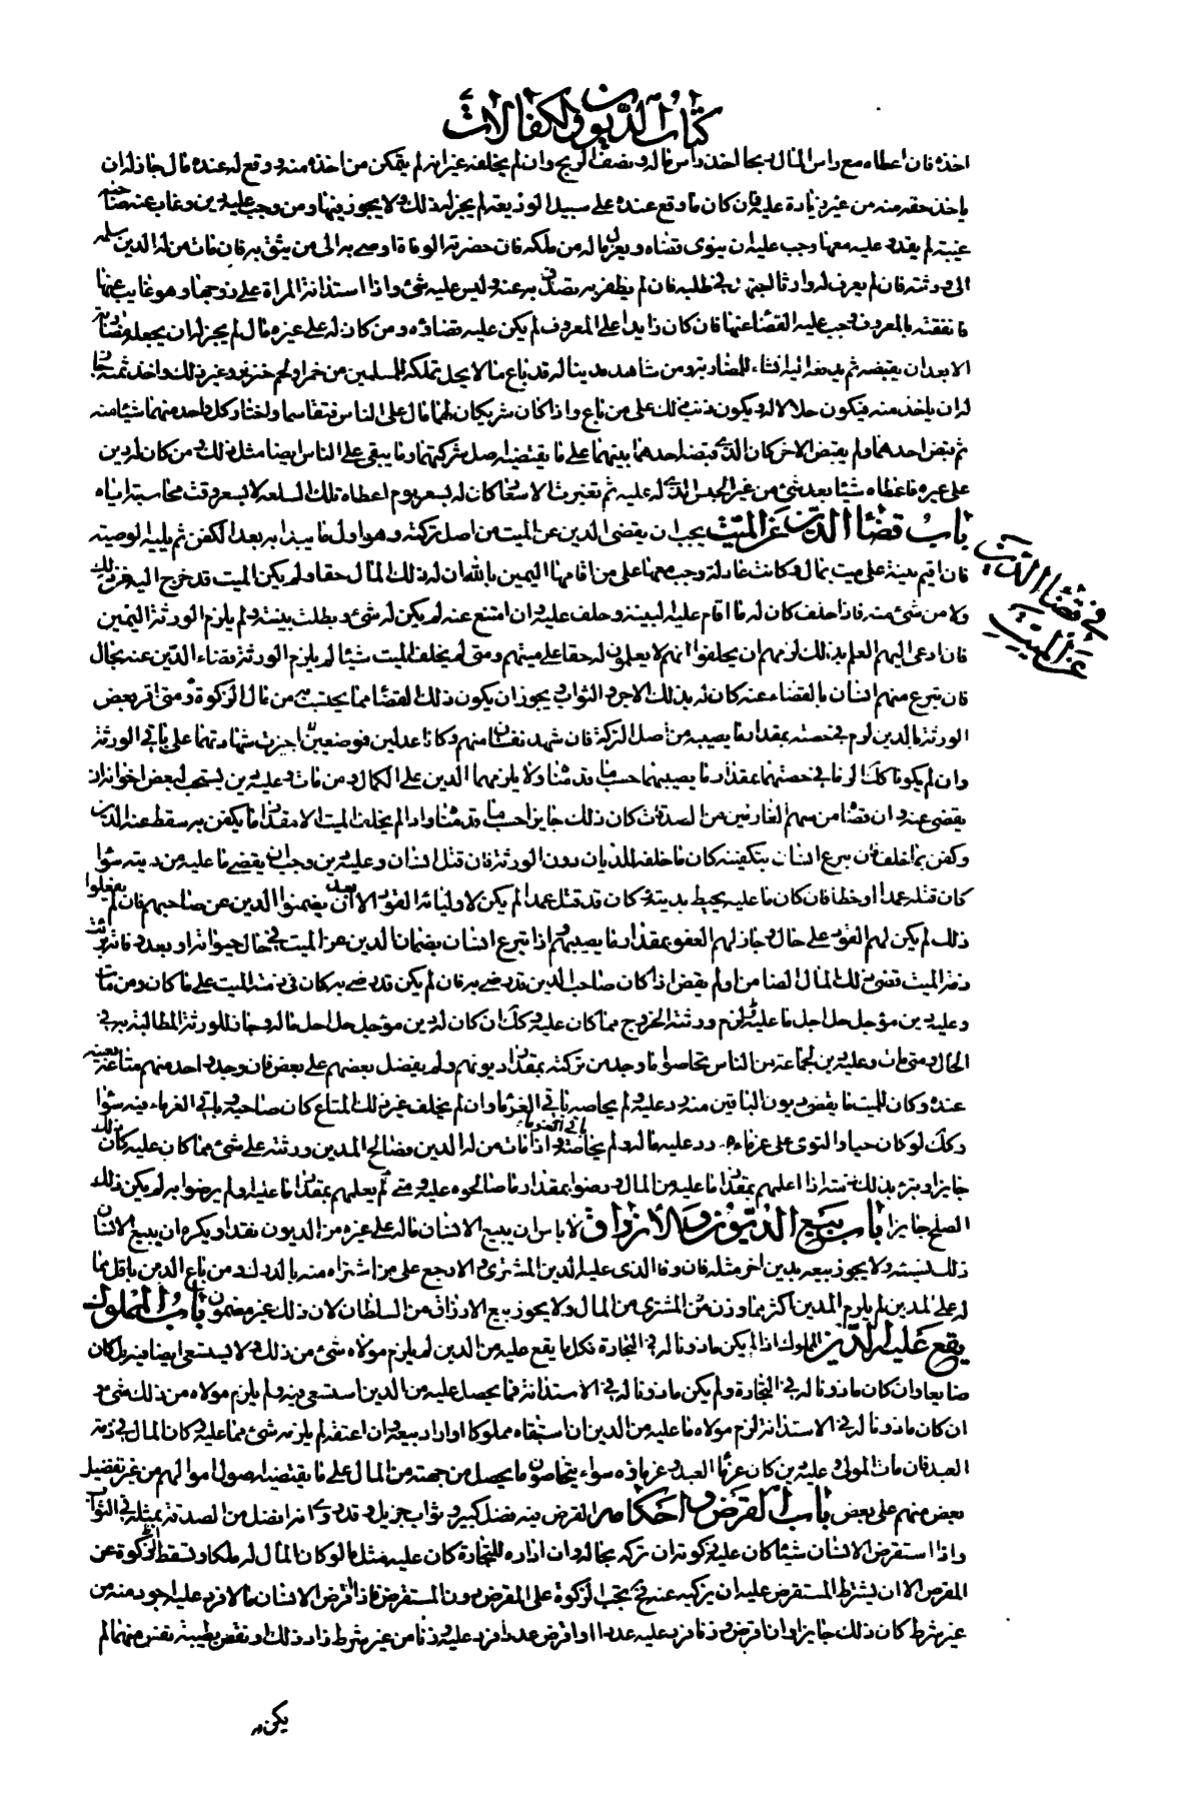 كتاب الديون والكفالات
اخذه فان اعطاه مع راس المال ربحا اخذ راس ماله ونصف الربح وان لم يخلفه غير انه لم يتمكن من اخذه منه ووقع له عنده مال جاز له ان
ياخذ حقه منه من غير زيادة عليه فان كان ما وقع عنده على سبيل الوديعة لم يجز له ذلك ولا يجوز فيها ومن وجب عليه دين وغاب عنه صاحبه
غيبة لم يقدر عليه معها وجب عليه ان ينوى قضاه ويعزل ماله من ملكه فان حضرته الوفاة اوصى به الى من يثق به فان مات من له الدين سلمه
الى ورثته فان لم يعرف له وارثا اجتهد فى طلبه فان لم يظفر به تصدق به عنه وليس عليه شئ واذا استدانة المراة على زوجها وهو غايب عنها
فانفقته بالمعروف وجب عليه القضا عنها فان كان زايدا على المعروف لم يكن عليه قضاؤه ومن كان له على غيره مال لم يجز له ان يجعله مضاربة
الا بعد ان يقبضه ثم يدفعه اليه ان شاء للمضاربة ومن شاهد مدينا له قد باع ما لا يحل تملكه للمسلمين من خمر او لحم خنزير وغير ذلك واخذ ثمنه جاز
له ان ياخذ منه فيكون حلالا له ويكون ذنب ذلك على من باع واذا كان شريكان لهما مال على الناس فتقاسما واختار كل واحد منهما شيئا منه
ثم قبض احدهما ولم يقبض الاخر كان الذى قبضه احدهما بينهما على ما يقتضيه اصل شركتهما وما يبقى على الناس ايضا مثل ذلك ومن كان له دين
على غيره فاعطاه شيئا بعد شئ من غير الجنس الذى له عليه ثم تغيرت الاسعار كان له بسعر يوم اعطاه تلك السلعة لا بسعر وقت محاسبته اياه
باب قضا الدين عن الميت يجب ان يقضى الدين عن الميت من اصل تركته وهو اول ما يبدا به بعد الكفن ثم يليه الوصية
فى قضا الدين
عن الميت
فان اقيم بينة على ميت بمال وكانت عادلة وجب معها على من اقامها اليمين بالله ان له ذلك المال حقا ولم يكن الميت قد خرج اليه من ذلك
ولا من شئ منه فاذا حلف كان له ما اقام عليه البينة وحلف عليه وان امتنع عنه لم يكن له شئ وبطلت بينته ولم يلزم الورثة اليمين
فان ادعى اليهم العلم بذلك لزمهم ان يحلفوا انهم لا يعلمون له حقا على ميتهم ومتى لم يخلف الميت شيئا لم يلزم الورثة قضاء الدين عنه بحال
فان تبرع منهم انسان بالقضاء عنه كان له بذلك الاجر والثواب ويجوز ان يكون ذلك القضا مما يحتسب به من مال الزكوة ومتى اقر بعض
الورثة بالدين لزم فى حصته بمقدار ما يصيبه من اصل التركة فان شهد نفسان منهم وكانا عدلين مرضيين اجزت شهادتهما على باقى الورثة
وان لم يكونا كذلك الزما فى حصتهما بمقدار ما يصيبهما حسب ما قدمناه ولا يلزمهما الدين على الكمال ومن مات وعليه دين يستحب لبعض اخوانه ان
يقضى عنه وان قضا من سهم الغارمين من الصدقات كان ذلك جايزا حسب ما قدمناه واذا لم يخلف الميت الا مقدار ما يكفن به سقط عنه الدين
وكفن بما خلف فان تبرع انسان بتكفينه كان ما خلفه للديان دون الورثة فان قتل انسان وعليه دين وجب ان يقضى ما عليه من ديته سوا
كان قتله عمدا او خطا فان كان ما عليه يحيط بديته وكان قد قتل عمدا لم يكن لاوليائه القود الا بعد ان يضمنوا الدين عن صاحبهم فان لم يفعلوا
ذلك لم يكن لهم القود على حال وجاز لهم العفو بمقدار ما يصيبهم واذا تبرع انسان بضمان الدين عن الميت فى حال حيواته او بعد وفاته برئت
ذمة الميت قضى ذلك المال الضامن او لم يقض اذا كان صاحب الدين قد رضى به فان لم يكن قد رضى به كان فى ذمة الميت على ما كان ومن مات
وعليه دين مؤجل حل اجل ما عليه ولزم ورثته الخروج مما كان عليه وكذلك ان كان له دين مؤجل حل اجل ماله وجاز للورثة المطالبة به فى
الحال ومتى مات وعليه دين لجماعة من الناس تحاصوا ما وجد من تركته بمقدار ديونهم ولم يفضل بعضهم على بعض فان وجد واحد منهم متاعه بعينه
عنده وكان للميت ما يقضى ديون الباقين منه رد عليه ولم يحاصه باقى الغرماء وان لم يخلف غير ذلك المتاع كان صاحبه وباقى الغرماء فيه سوا
وكذلك لو كان حيا والتوى على غرمائه رد عليه ماله ولم يحاصه باقى الغرماء واذا مات من له الدين فصالح المدين ورثته على شئ مما كان عليه كان ذلك
جايزا وبرئ بذلك ذمته اذا اعلمهم بمقدار ما عليه من المال ورضوا بمقدار ما صالحوه عليه ومتى لم يعلمهم بمقدار ما عليه ولم يرضوا به لم يكن ذلك
الصلح جايزا باب بيع الديون والارزاق لا باس ان يبيع الانسان ماله على غيره من الديون نقدا ويكره ان يبيع الانسان
ذلك نسيئة ولا يجوز بيعه بدين اخر مثله فان وفا الذى عليه الدين المشترى والا رجع على من اشتراه منه بالدرك ومن باع الدين باقل مما
له على المدين لم يلزم المدين اكثر مما وزن من المشترى من المال ولا يجوز بيع الارزاق من السلطان لان ذلك غير مضمون باب المملوك
يقع عليه الدين المملوك اذا لم يكن ماذونا له فى التجارة فكل ما يقع عليه من الدين لم يلزم مولاه شئ من ذلك ولا يستسعى ايضا فيه بل كان
ضايعا وان كان ماذونا له فى التجارة ولم يكن ماذونا له فى الاستدانة فما يحصل عليه من الدين استسعى فيه ولم يلزم مولاه من ذلك شئ و
ان كان ماذونا له فى الاستدانة لزم مولاه ما عليه من الدين ان استبقاه مملوكا او اراد بيعه وان اعتقه لم يلزمه شئ مما عليه وكان المال فى ذمة
العبد فان مات المولى وعليه دين كان غرما العبد وغرماؤه سواء يتحاصون ما يحصل من جهته من المال على ما يقتضيه اصول اموالهم من غير تفضيل
بعض منهم على بعض باب القرض واحكامه القرض فيه فضل كبير وثواب جزيل وقد روى انه افضل من الصدقة بمثله فى الثواب
واذا استقرض الانسان شيئا كان عليه زكوته ان تركه بحاله وان اداره للتجارة كان عليه مثل ما لو كان المال له ملكا وتسقط الزكوة عن
المقرض الا ان يشترط المستقرض عليه ان يزكيه عنه فحينئذ يجب الزكوة على المقرض دون المستقرض فاذا اقرض الانسان مالا فرد عليه اجود منه من
غير شرط كان ذلك جايزا وان اقرض وزنا فرد عليه عددا او اقرض عددا فرد عليه وزنا من غير شرط زاد ذلك او نقص بطيبة نفس منهما لم
يكن به